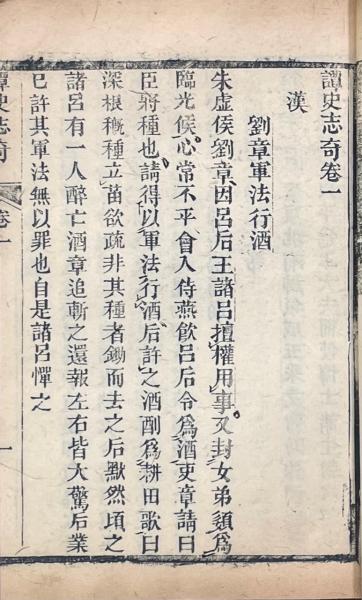 譚史志奇卷一
漢
劉章軍法行酒
朱虛侯劉章因呂后王諸呂擅權用事又封女弟嬃爲
臨光侯心常不平會入侍燕飲呂后令爲酒吏章請曰
臣將種也請得以軍法行酒后許之酒酣爲耕田歌曰
深根穊種立苗欲疏非其種者鋤而去之后默然頃之
諸呂有一人醉亡酒章追斬之還報左右皆大驚后業
已許其軍法無以罪也自是諸呂憚之
譚史志奇
卷一
一